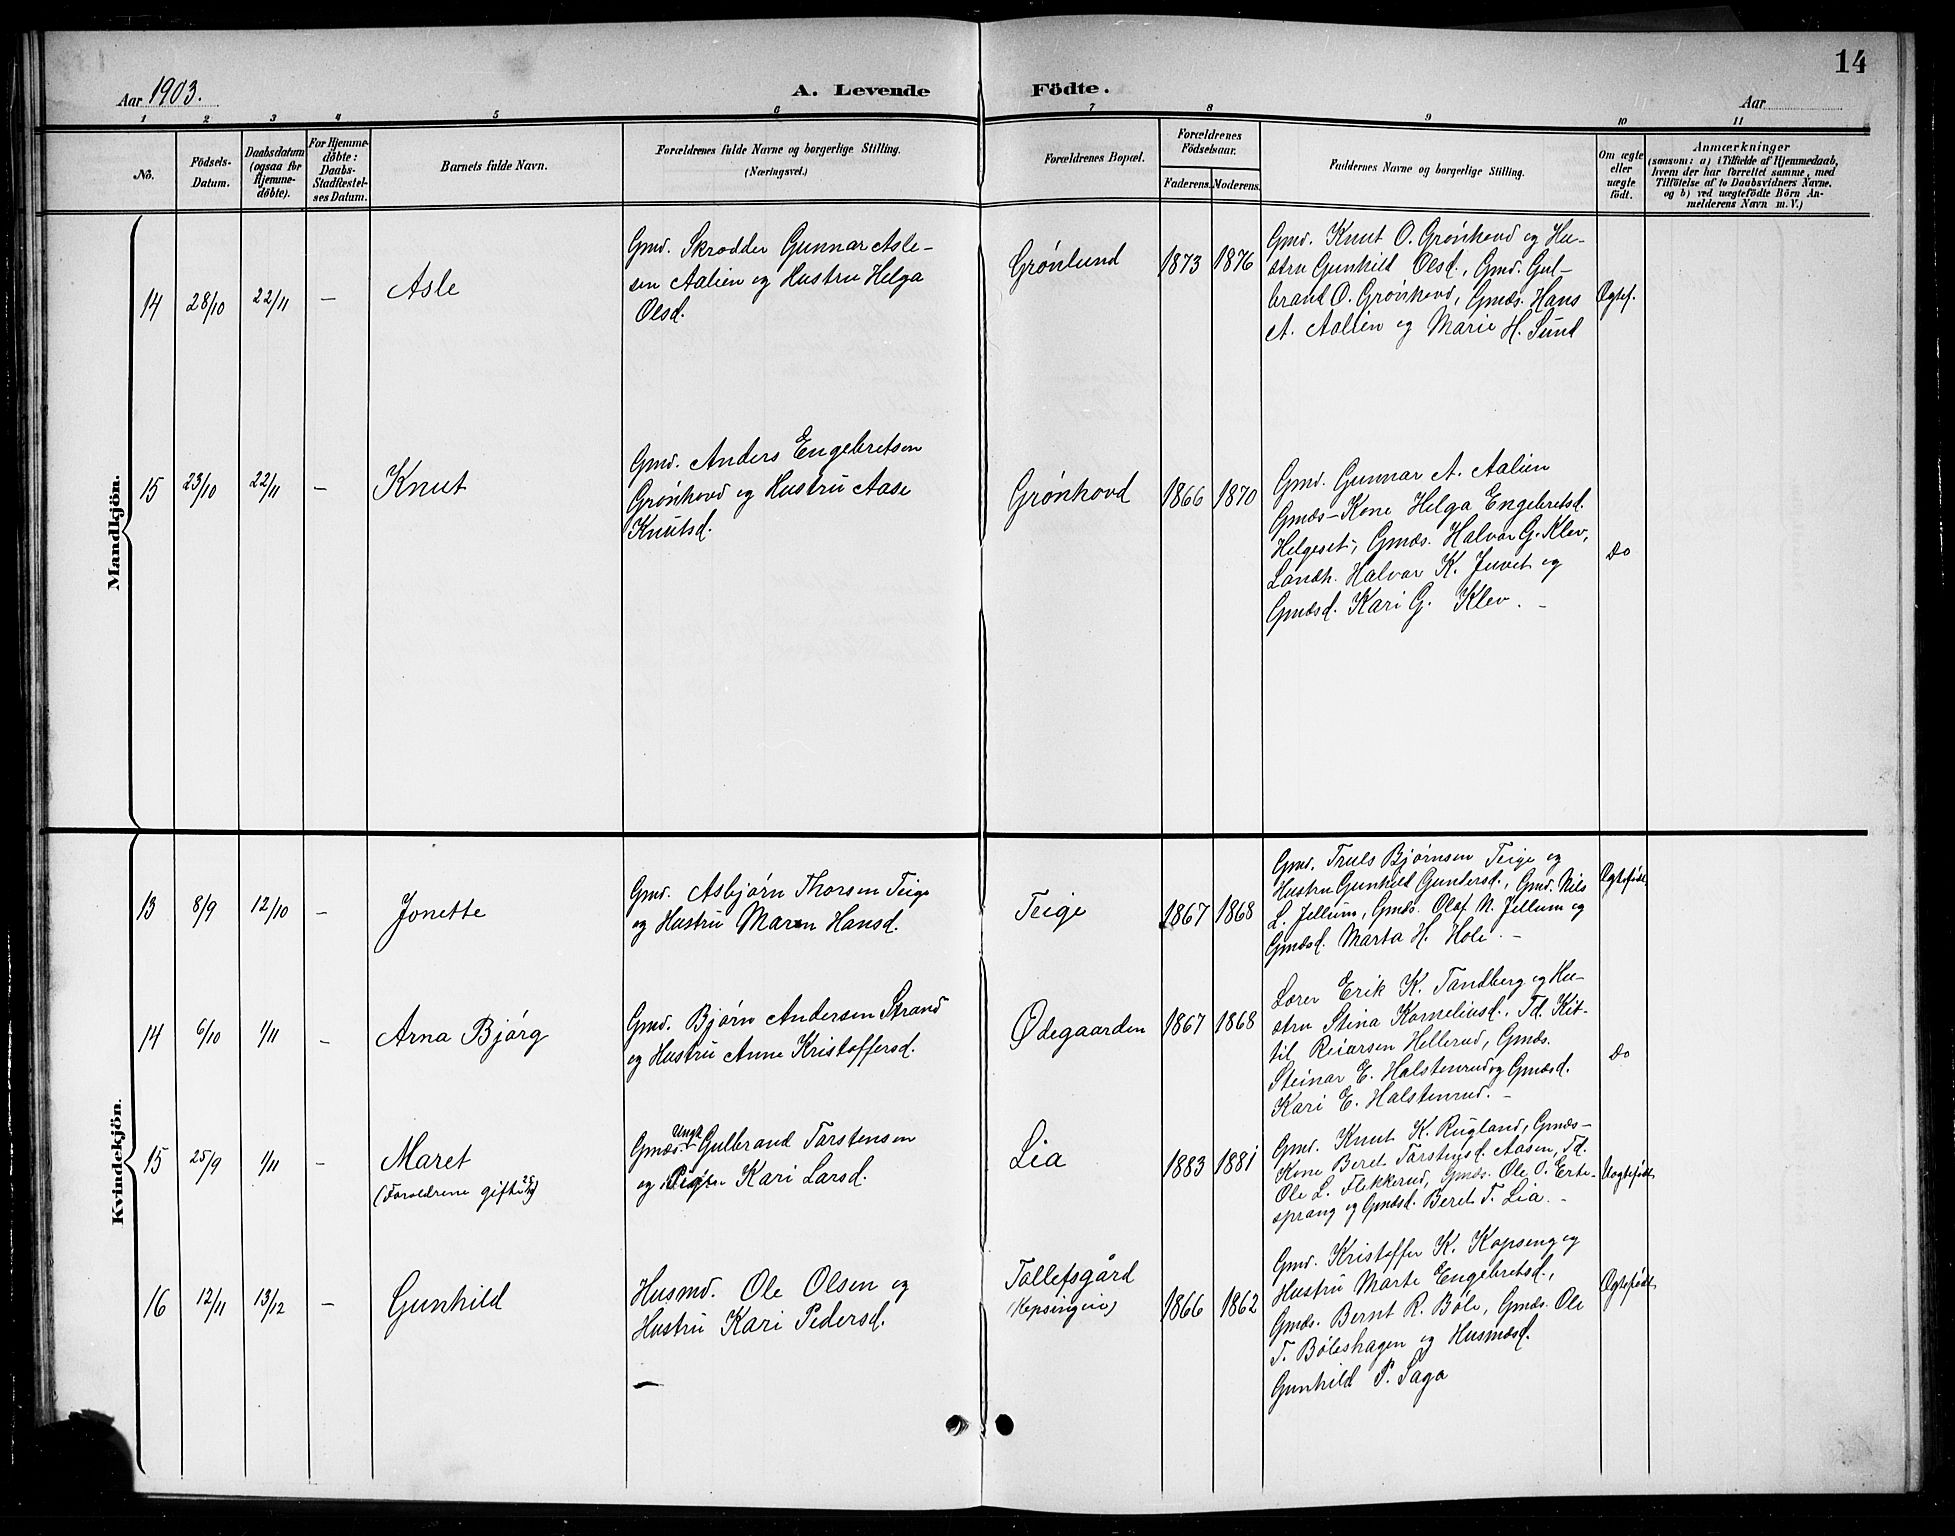 14
Aar 1903.
A. Levende Födte.
Aar
1 2 3 4 5 6 7 8 9 10 11
No.
Födsels-
Datum.
Daabsdatum
(ogsaa for
Hjemme-
døbte).
For Hjemme-
døbte:
Daabs-
Stadfæstel-
ses Datum.
Barnets fulde Navn.
Forældrenes fulde Navne og borgerlige Stilling.
(Næringsvei.)
Forældrenes Bopæl.
Forældrenes
Födselsaar.
Faderens. Moderens.
Faddernes Navne og borgerlige Stilling.
Om ægte
eller
uægte
født.
Anmærkninger
(saasom: a) i Tilfælde af Hjemmedaab,
hvem der har forrettet samme, med
Tilföielse af to Daabsvidners Navne.
og b) ved uægtefödte Börn An-
melderens Navn m. V.)
Mandkjön.
14
28/10
22/11
–
Asle
Gmd. Skrædder Gunnar Asle-
sen Aalien og Hustru Helga
Olsd.
Grønlund
1873
1876
Gmd. Knut O. Grønhovd og Hu-
stru Gunhild Olsd., Gmd. Gul-
brand O. Grønhovd, Gmds. Hans
A. Aalien og Marie H. Sund
Ægtef.
15
23/10
22/11
–
Knut
Gmd. Anders Engebretsen
Grønhovd og Hustru Aase
Knutsd.
Grønhovd
1866
1870
Gmd. Gunnar A. Aalien
Gmds-Kone Helga Engebretsd.
Helgeset, Gmds. Halvor G. Klev,
Landh. Halvor K. Juvet og
Gmdsd. Kari G. Klev. –
Do
Kvindekjön.
13
8/9
12/10
–
Jonette
Gmd. Asbjørn Thorsen Teige
og Hustru Maren Hansd.
Teige
1867
1868
Gmd. Truls Bjørnsen Teige og
Hustru Gunhild Gundersd., Gmd. Nils
L. Jellum, Gmds. Olaf N. Jellum og
Gmdsd. Marta H. Hole. –
Ægtefødt
14
6/10
1/11
–
Arna Bjørg
Gmd. Bjørn Andersen Strand
og Hustru Anne Kristoffersd.
Ødegaarden
1867
1868
Lærer Erik K. Tandberg og Hu-
stru Stina Kornelinsd., Td. Kit-
til Reiarsen Hellerud, Gmds.
Steinar E. Halstenrud og Gmdsd.
Kari E. Halstenrud. –
Do
15
25/9
1/11
–
Maret
(Forældrene gifte
Ungk.
Gmds. Gulbrand Torstensen
og Pige Kari Larsd.
Lia
1883
1881
Gmd. Knut K. Rugland, Gmds-
Kone Beret Torstensd. Aasen, Td.
Ole L. Flekkerud, Gmds. Ole O. Erte-
sprang og Gmdsd. Beret T. Lia. –
Uægtefødt
16
12/11
13/12
–
Gunhild
Husmd. Ole Olsen og
Hustru Kari Pedersd.
–
Tollefsgård
1866
1862
Gmd. Kristoffer K. Kopseng og
Hustru Marte Engebretsd.,
Gmds. Bernt R. Bøle, Gmds. Ole
T. Bøleshagen og Husmdsd.
Gunhild P. Saga
Ægtefødt